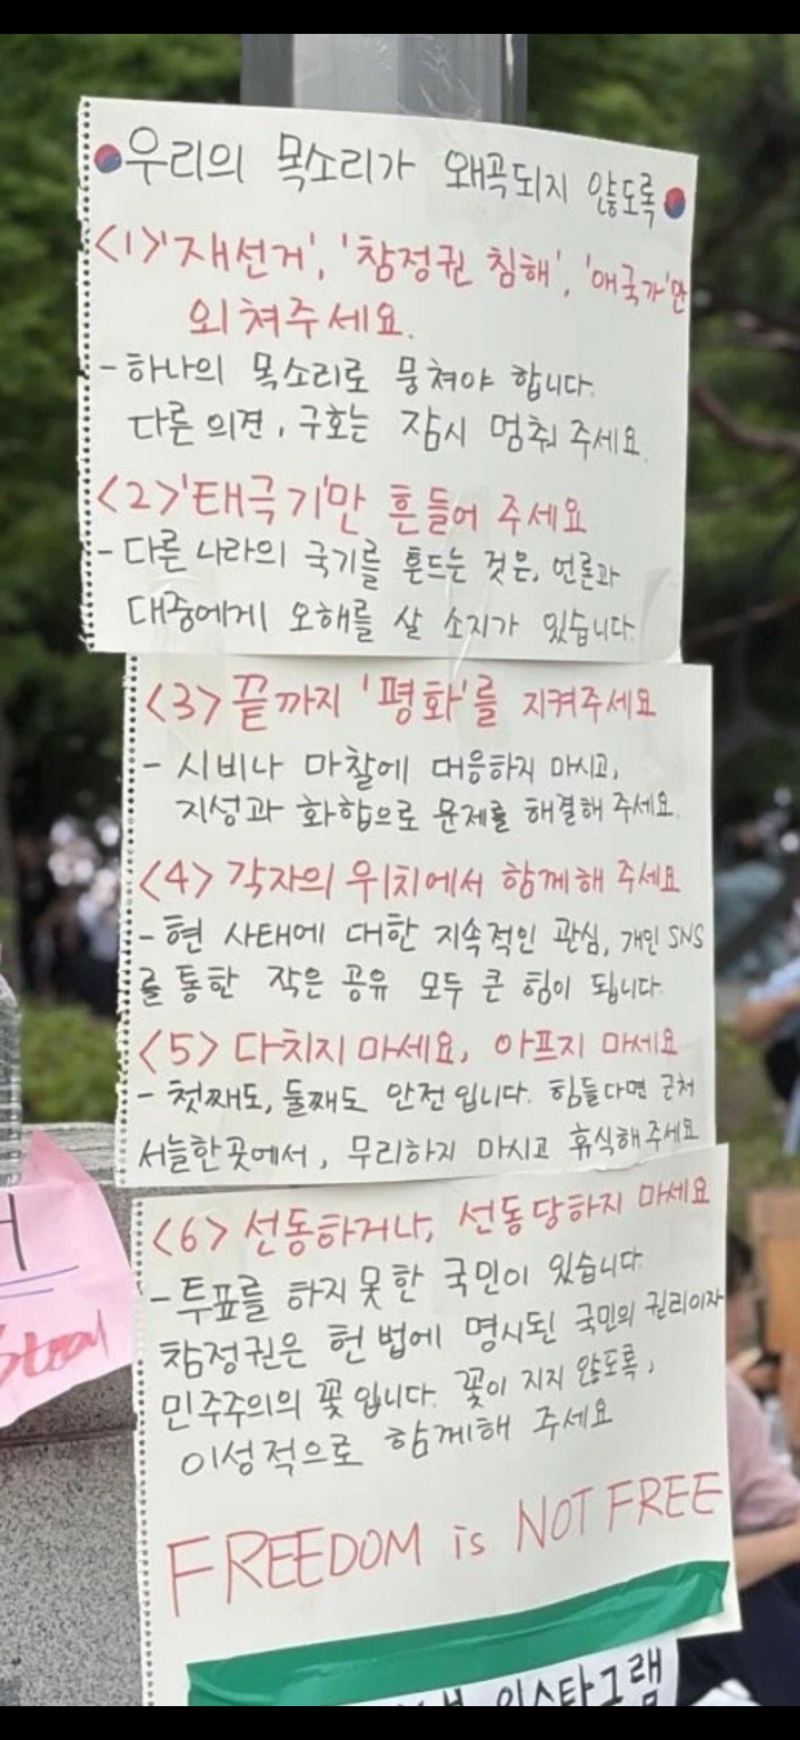 우리의 목소리가 왜곡되지 않도록
<1>'재선거', '참정권 침해', '애국가'만
외쳐주세요.
- 하나의 목소리로 뭉쳐야 합니다.
다른 의견, 구호는 잠시 멈춰 주세요.
<2>'태극기'만 흔들어 주세요
- 다른 나라의 국기를 흔드는 것은, 언론과
대중에게 오해를 살 소지가 있습니다.
<3> 끝까지 '평화'를 지켜주세요
- 시비나 마찰에 대응하지 마시고,
지성과 화합으로 문제를 해결해 주세요.
<4> 각자의 위치에서 함께해 주세요
- 현 사태에 대한 지속적인 관심, 개인 SNS
를 통한 작은 공유 모두 큰 힘이 됩니다.
<5> 다치지 마세요, 아프지 마세요
- 첫째도, 둘째도 안전입니다. 힘들다면 근처
서늘한곳에서, 무리하지 마시고 휴식해주세요
<6> 선동하거나, 선동당하지 마세요
- 투표를 하지 못한 국민이 있습니다.
참정권은 헌법에 명시된 국민의 권리이자
민주주의의 꽃입니다. 꽃이 지지 않도록,
이성적으로 함께해 주세요
FREEDOM is NOT FREE
인스타그램